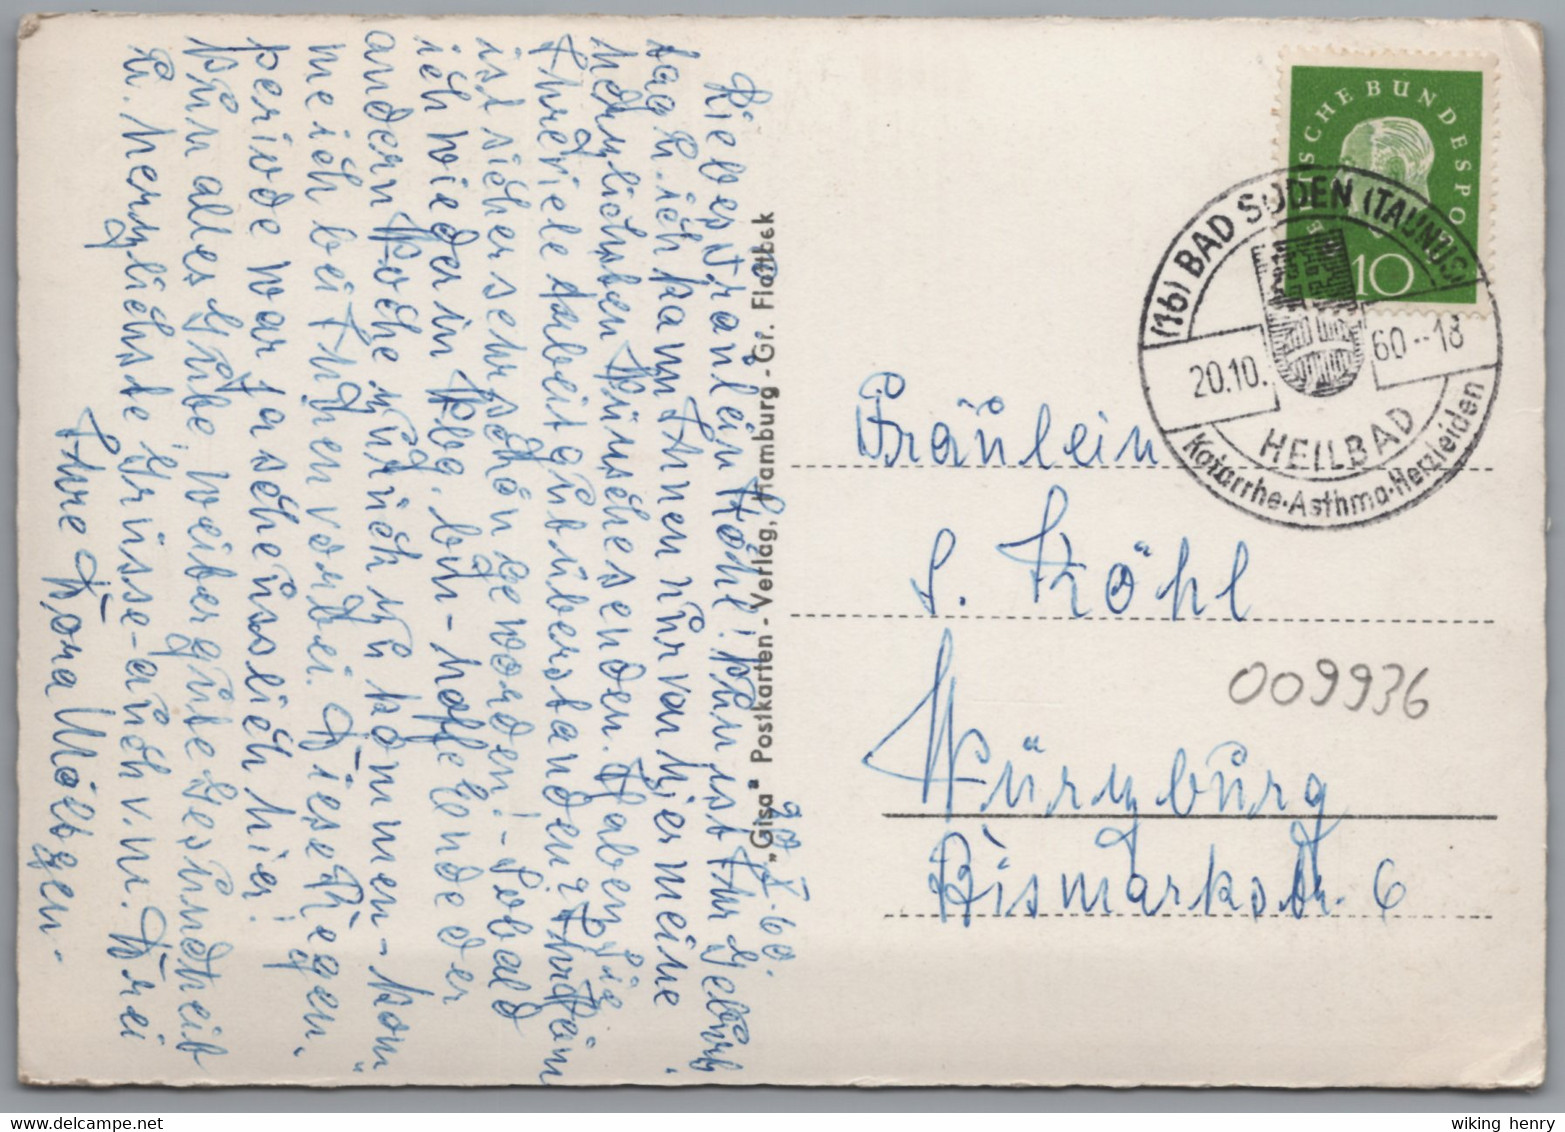 20.X.60.
Liebes Fräulein Köhl! Nun ist Ihr Geburts
tag u. ich kann Ihnen nur von hier meine
herzlichsten Wünsche senden. Haben Sie
Ihre viele Arbeit gut überstanden? Ihr Heim
ist sicher sehr schön geworden! - Sobald
ich wieder in Wbg. bin - hoffe Ende der
andern Woche zurück zu kommen - kom
me ich bei Ihnen vorbei. Diese Regen-
periode war ja scheusslich hier!
Nun alles Gute, weiter gute Gesundheit
u. herzlichste Grüsse - auch v. m. Drei
Ihre Dora
"Gisa" Postkarten - Verlag, Hamburg - Gr. Flottbek
DEUTSCHE BUNDESPOST
10
(16) BAD SODEN (TAUNUS)
20.10. 60 -- 18
HEILBAD
Katarrhe-Asthma-Herzleiden
Fräulein
S. Köhl
009936
Würzburg
Bismarckstr. 6
wiking henry